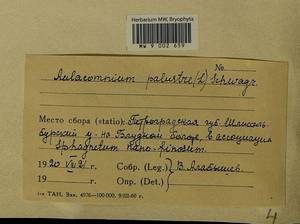 Herbarium MW, Bryophyta
MW 9 002 659
No
Aulacomnium palustre (L) Schwägr.
Место сбора (statio): Петроградская губ. Шлиссель-
бургский у. на Блудном болоте, в ассоциации
Sphagnetum nano-pinosum.
1920 VII 21 Собр. (Leg.) В. Алабышев.
19 г. Опр. (Det.)
1-я ТАН. Зак. 4976—100 000. 9/III-60 г.
4